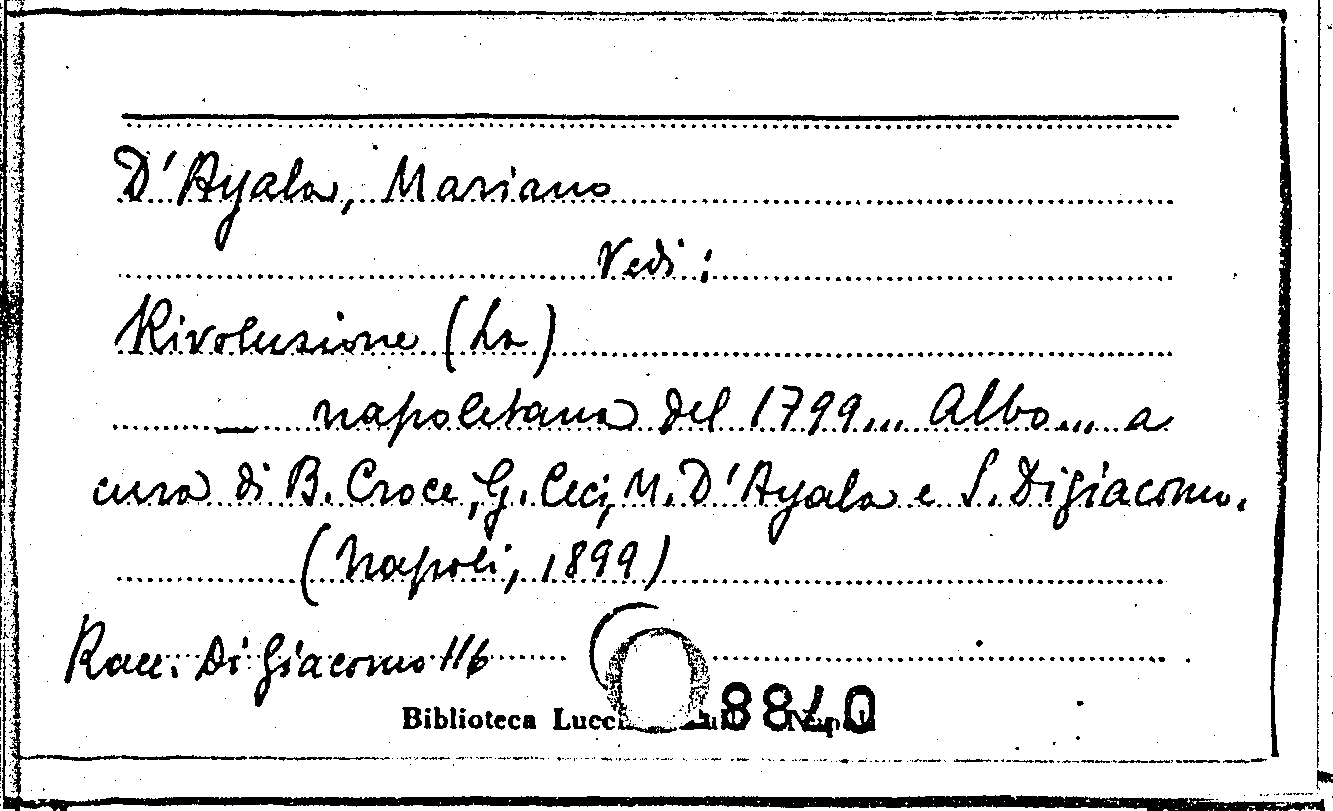 D'Ayala, Mariano
Vedi:
Rivoluzione (La)
— napoletana del 1799... Albo... a
cura di B. Croce, G. Ceci, M. D'Ayala e S. Di Giacomo.
(Napoli, 1899)
Racc. Di Giacomo 116
Biblioteca